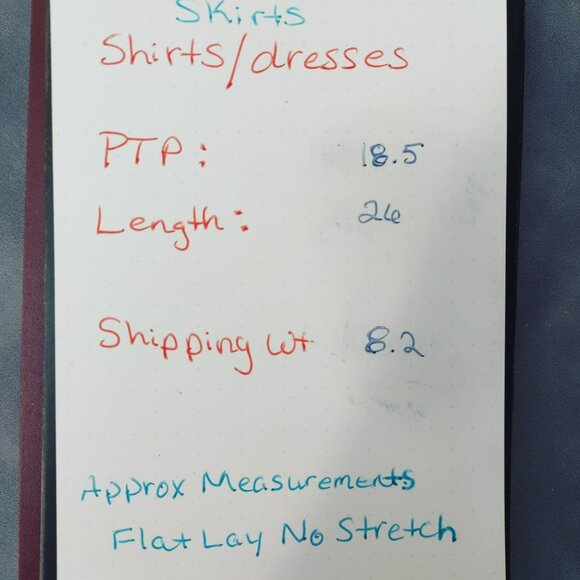 Skirts
Shirts/dresses
PTP: 18.5
Length: 26
Shipping Wt 8.2
Approx Measurements
Flat Lay No Stretch